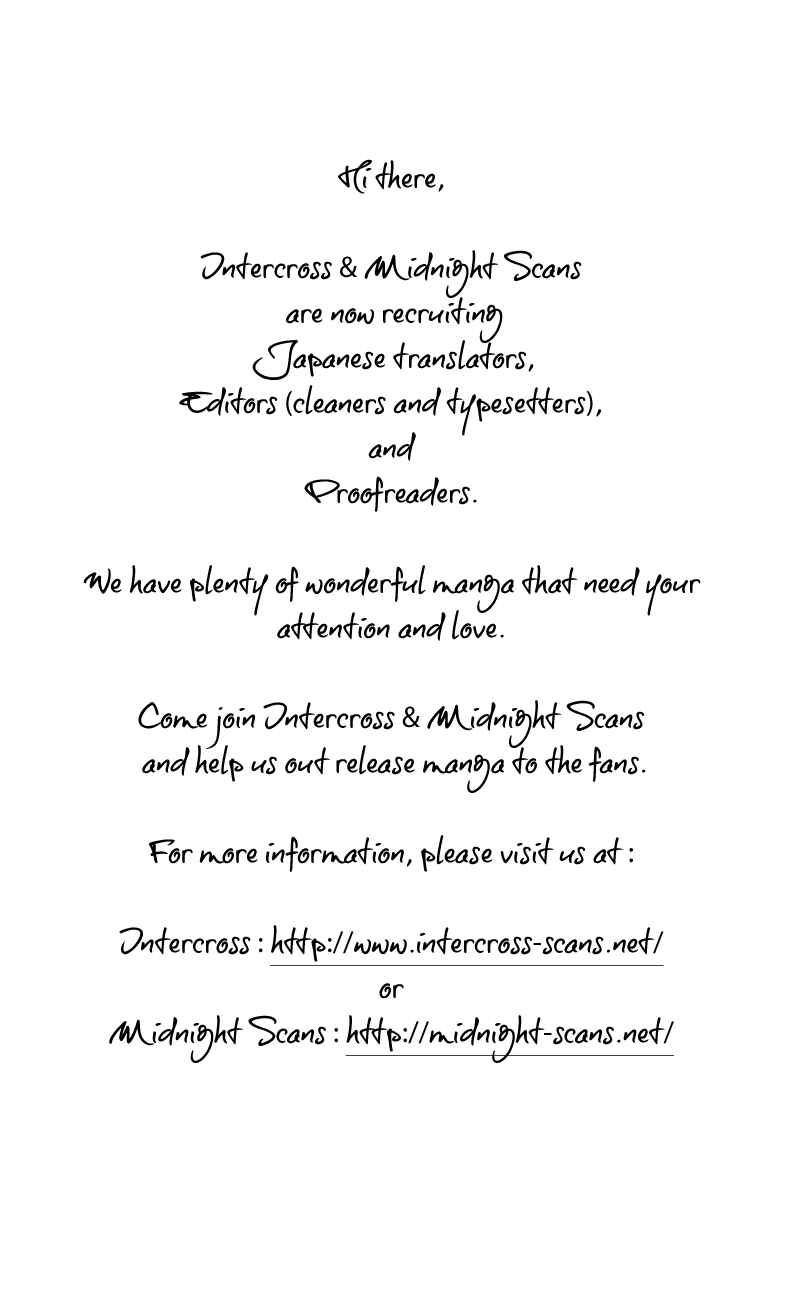 Hi there,
Intercross & Midnight Scans
are now recruiting
Japanese translators,
Editors (cleaners and typesetters),
and
Proofreaders.
We have plenty of wonderful manga that need your
attention and love.
Come join Intercross & Midnight Scans
and help us out release manga to the fans.
For more information, please visit us at :
Intercross : http://www.intercross-scans.net/
or
Midnight Scans : http://midnight-scans.net/